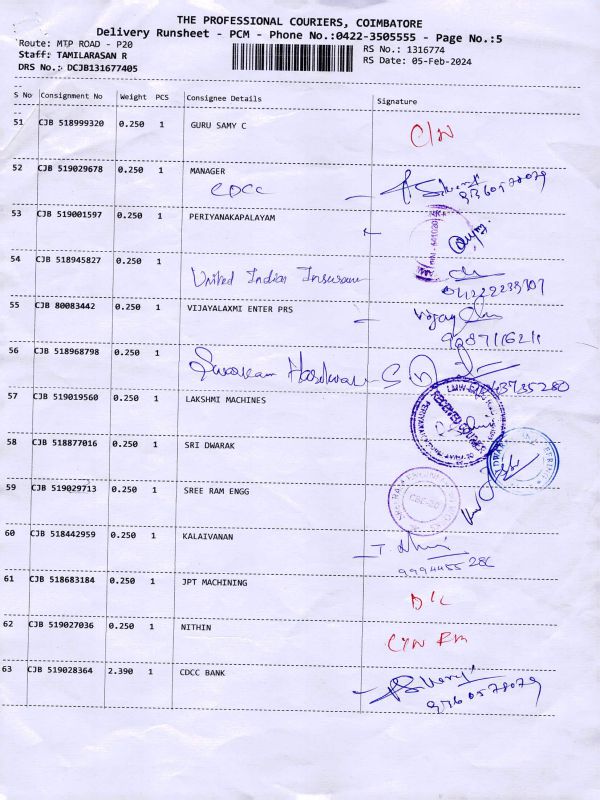 THE PROFESSIONAL COURIERS, COIMBATORE
Delivery Runsheet - PCM - Phone No.:0422-3505555 - Page No.:5
Route: MTP ROAD - P20
RS No.: 1316774
Staff: TAMILARASAN R
RS Date: 05-Feb-2024
DRS No.: DCJB131677405
S No Consignment No Weight PCS Consignee Details Signature
51 CJB 518999320 0.250 1 GURU SAMY C C/N
52 CJB 519029678 0.250 1 MANAGER
CDCC
53 CJB 519001597 0.250 1 PERIYANAKAPALAYAM
54 CJB 518945827 0.250 1
United India Insurance
55 CJB 80083442 0.250 1 VIJAYALAXMI ENTER PRS
56 CJB 518968798 0.250 1
57 CJB 519019560 0.250 1 LAKSHMI MACHINES
58 CJB 518877016 0.250 1 SRI DWARAK
59 CJB 519029713 0.250 1 SREE RAM ENGG
60 CJB 518442959 0.250 1 KALAIVANAN
61 CJB 518683184 0.250 1 JPT MACHINING
D/L
62 CJB 519027036 0.250 1 NITHIN
63 CJB 519028364 2.390 1 CDCC BANK